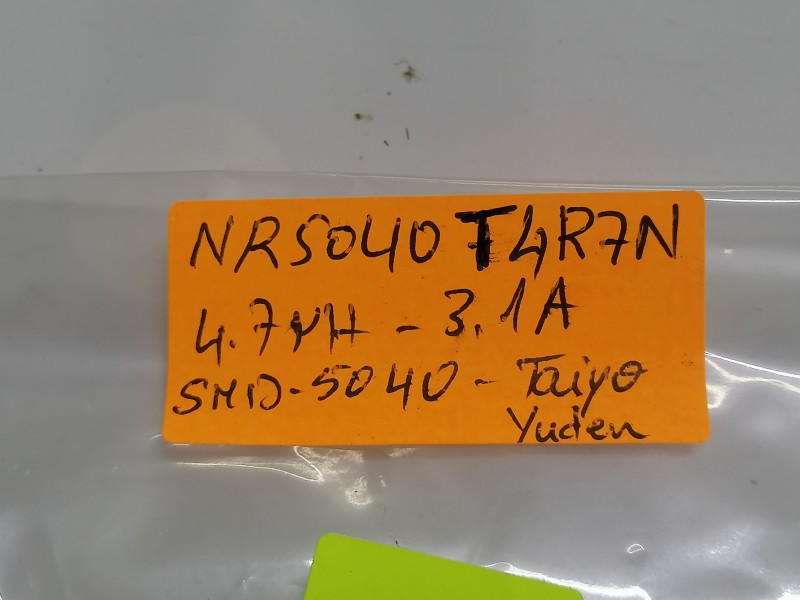 NR5040T4R7N
4.7µH - 3.1A
SMD-5040 - Taiyo
Yuden